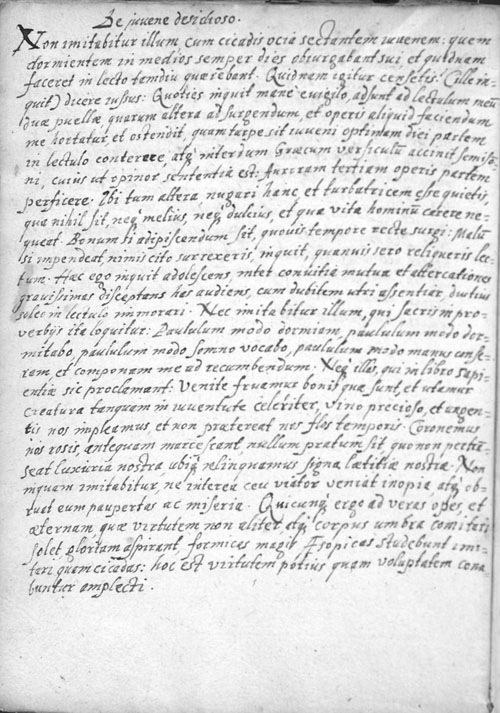 De juvene desidioso.
Non imitabitur illum cum cicadis ocia sectantem iuvenem: quem
dormientem in medios semper dies obiurgabant sui, et quidnam
faceret in lecto tamdiu quærebant. Quidnam igitur censetis? (ille in-
quit) dicere iussus: Quoties inquit mane evigilo, adsunt ad lectulum meū
duæ puellæ quarum altera ad surgendum, et operis aliquid faciendum
me hortatur, et ostendit, quam turpe sit iuveni optimam diei partem
in lectulo conterere, atq; interdum Græcum versiculū accinit semiso-
ni, cuius ut opinor sententia est: Auroram tertiam operis partem
perficere. Ibi tum altera, nugari hanc et turbatricem esse quietis,
qua nihil sit, neq; melius, neq; dulcius, et qua vita hominū carere ne-
queat. Bonum si adipiscendum sit, quovis tempore recte surgi: Malū
si impendeat, nimis cito surrexeris, inquit, quamvis sero reliqueris lec-
tum. Hæc ego inquit adolescens, inter convitia mutua et altercationes
gravissimas disceptans has audiens, cum dubitem utri assentiar, diutius
soleo in lectulo immorari. Nec imitabitur illum, qui sacris in pro-
verbijs ita loquitur: Paululum modo dormiam paululum modo dor-
mitabo, paululum modo somno vocabo, paululum modo manus conse-
ram, et componam me ad recumbendum. Neq; illos, qui in libro sapi-
entiæ sic proclamant: Venite fruamur bonis quæ sunt, et utamur
creatura tanquam in iuventute celeriter, vino precioso, et ungen-
tis nos impleamus, et non prætereat nos flos temporis. Coronemus
nos rosis, antequam marcescant, nullum pratum sit, quo non pertrā-
seat luxuria nostra ubiq; relinquamus signa lætitiæ nostræ. Non
inquam imitabitur, ne interea ceu viator veniat inopia atq; ob-
ruat eum paupertas ac miseria. Quicunq; ergo ad veras opes, et
æternam quæ virtutem non aliter atq; corpus umbra comitari
solet gloriam aspirant, formicas magis Æsopicas studebunt imi-
tari quam cicadas: hoc est virtutem potius quam voluptatem cona-
buntur amplecti.